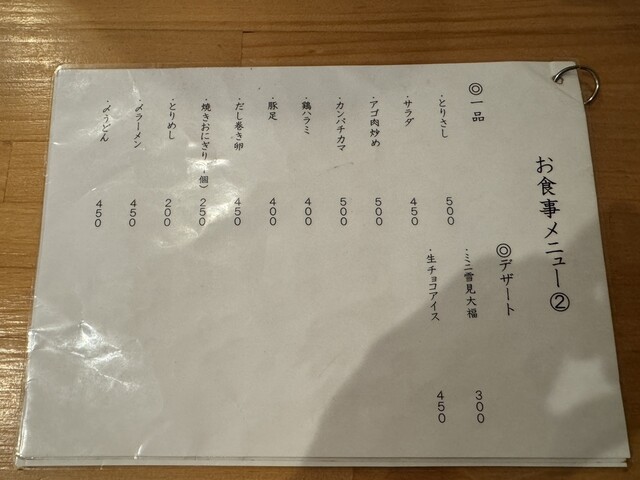 お食事メニュー②
◎一品
・とりさし 500
・サラダ 450
・アゴ肉炒め 500
・カンパチカマ 500
・鶏ハラミ 400
・豚足 400
・だし巻き卵 450
・焼きおにぎり(1個) 250
・とりめし 200
・〆ラーメン 450
・〆うどん 450
◎デザート
・ミニ雪見大福 300
・生チョコアイス 450